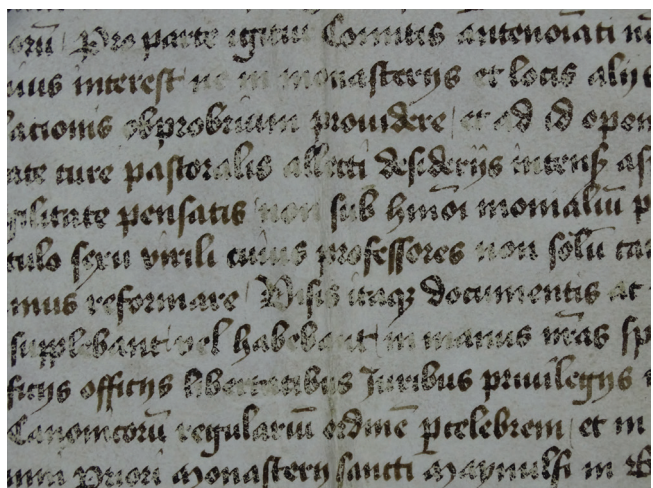 orū / Pro parte igitur Comitis antenoīati
uius interest ne in monasterijs et locis alijs
lationis obprobrium prouidere / et ad id open
ate cure pastoralis allecti desiderijs intensꝭ
gilitate pensatis / non sub hmōi monialiū
culo sexu virili cuius professores non solū
mus reformare / Visis itaqꝫ documentis ac
supplebant / vel habebant / in manus nr̄as
ficijs officijs libertatibus Juribus priuilegijs
Canonicorū regulariū ordinē ꝑcelebrem / et in
Priori Monasterij sancti Maynulfi in